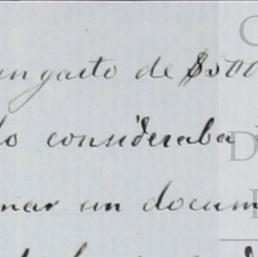 un gasto de $500
lo consideraba
mar un docum